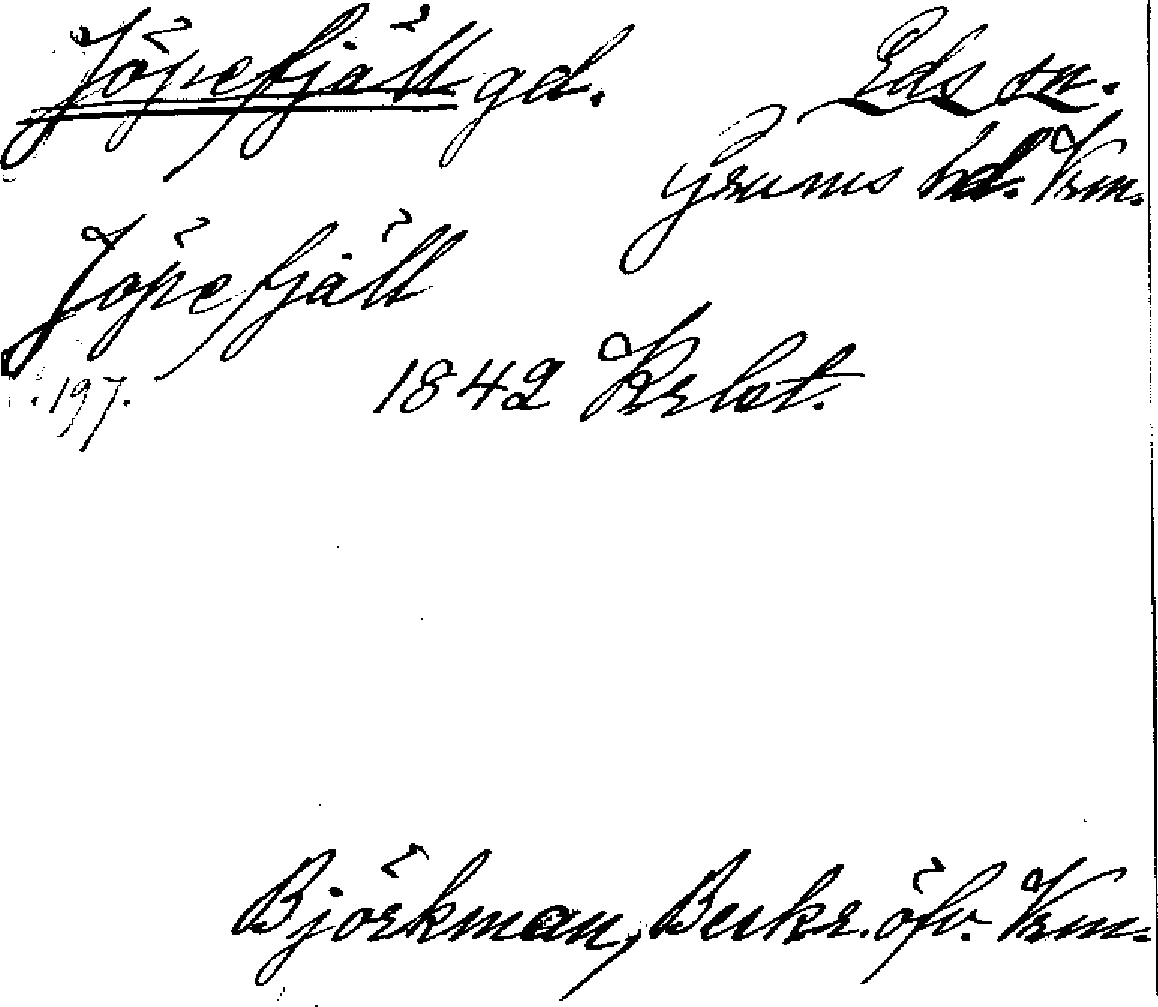 Jöpefjäll gd. Eds sn.
Grums hd. Vrm.
Jöpefjäll
s. 197. 1842 Krlst.
Björkman, Beskr. öfv. Vrm.